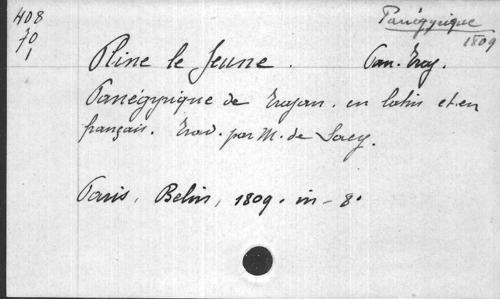 408
70
1
Panégyrique
1809
Pline le Jeune. Pan. Traj.
Panégyrique de Trajan. en latin et en
français. Trad. par M. de Sacy.
Paris, Belin, 1809. in-8°